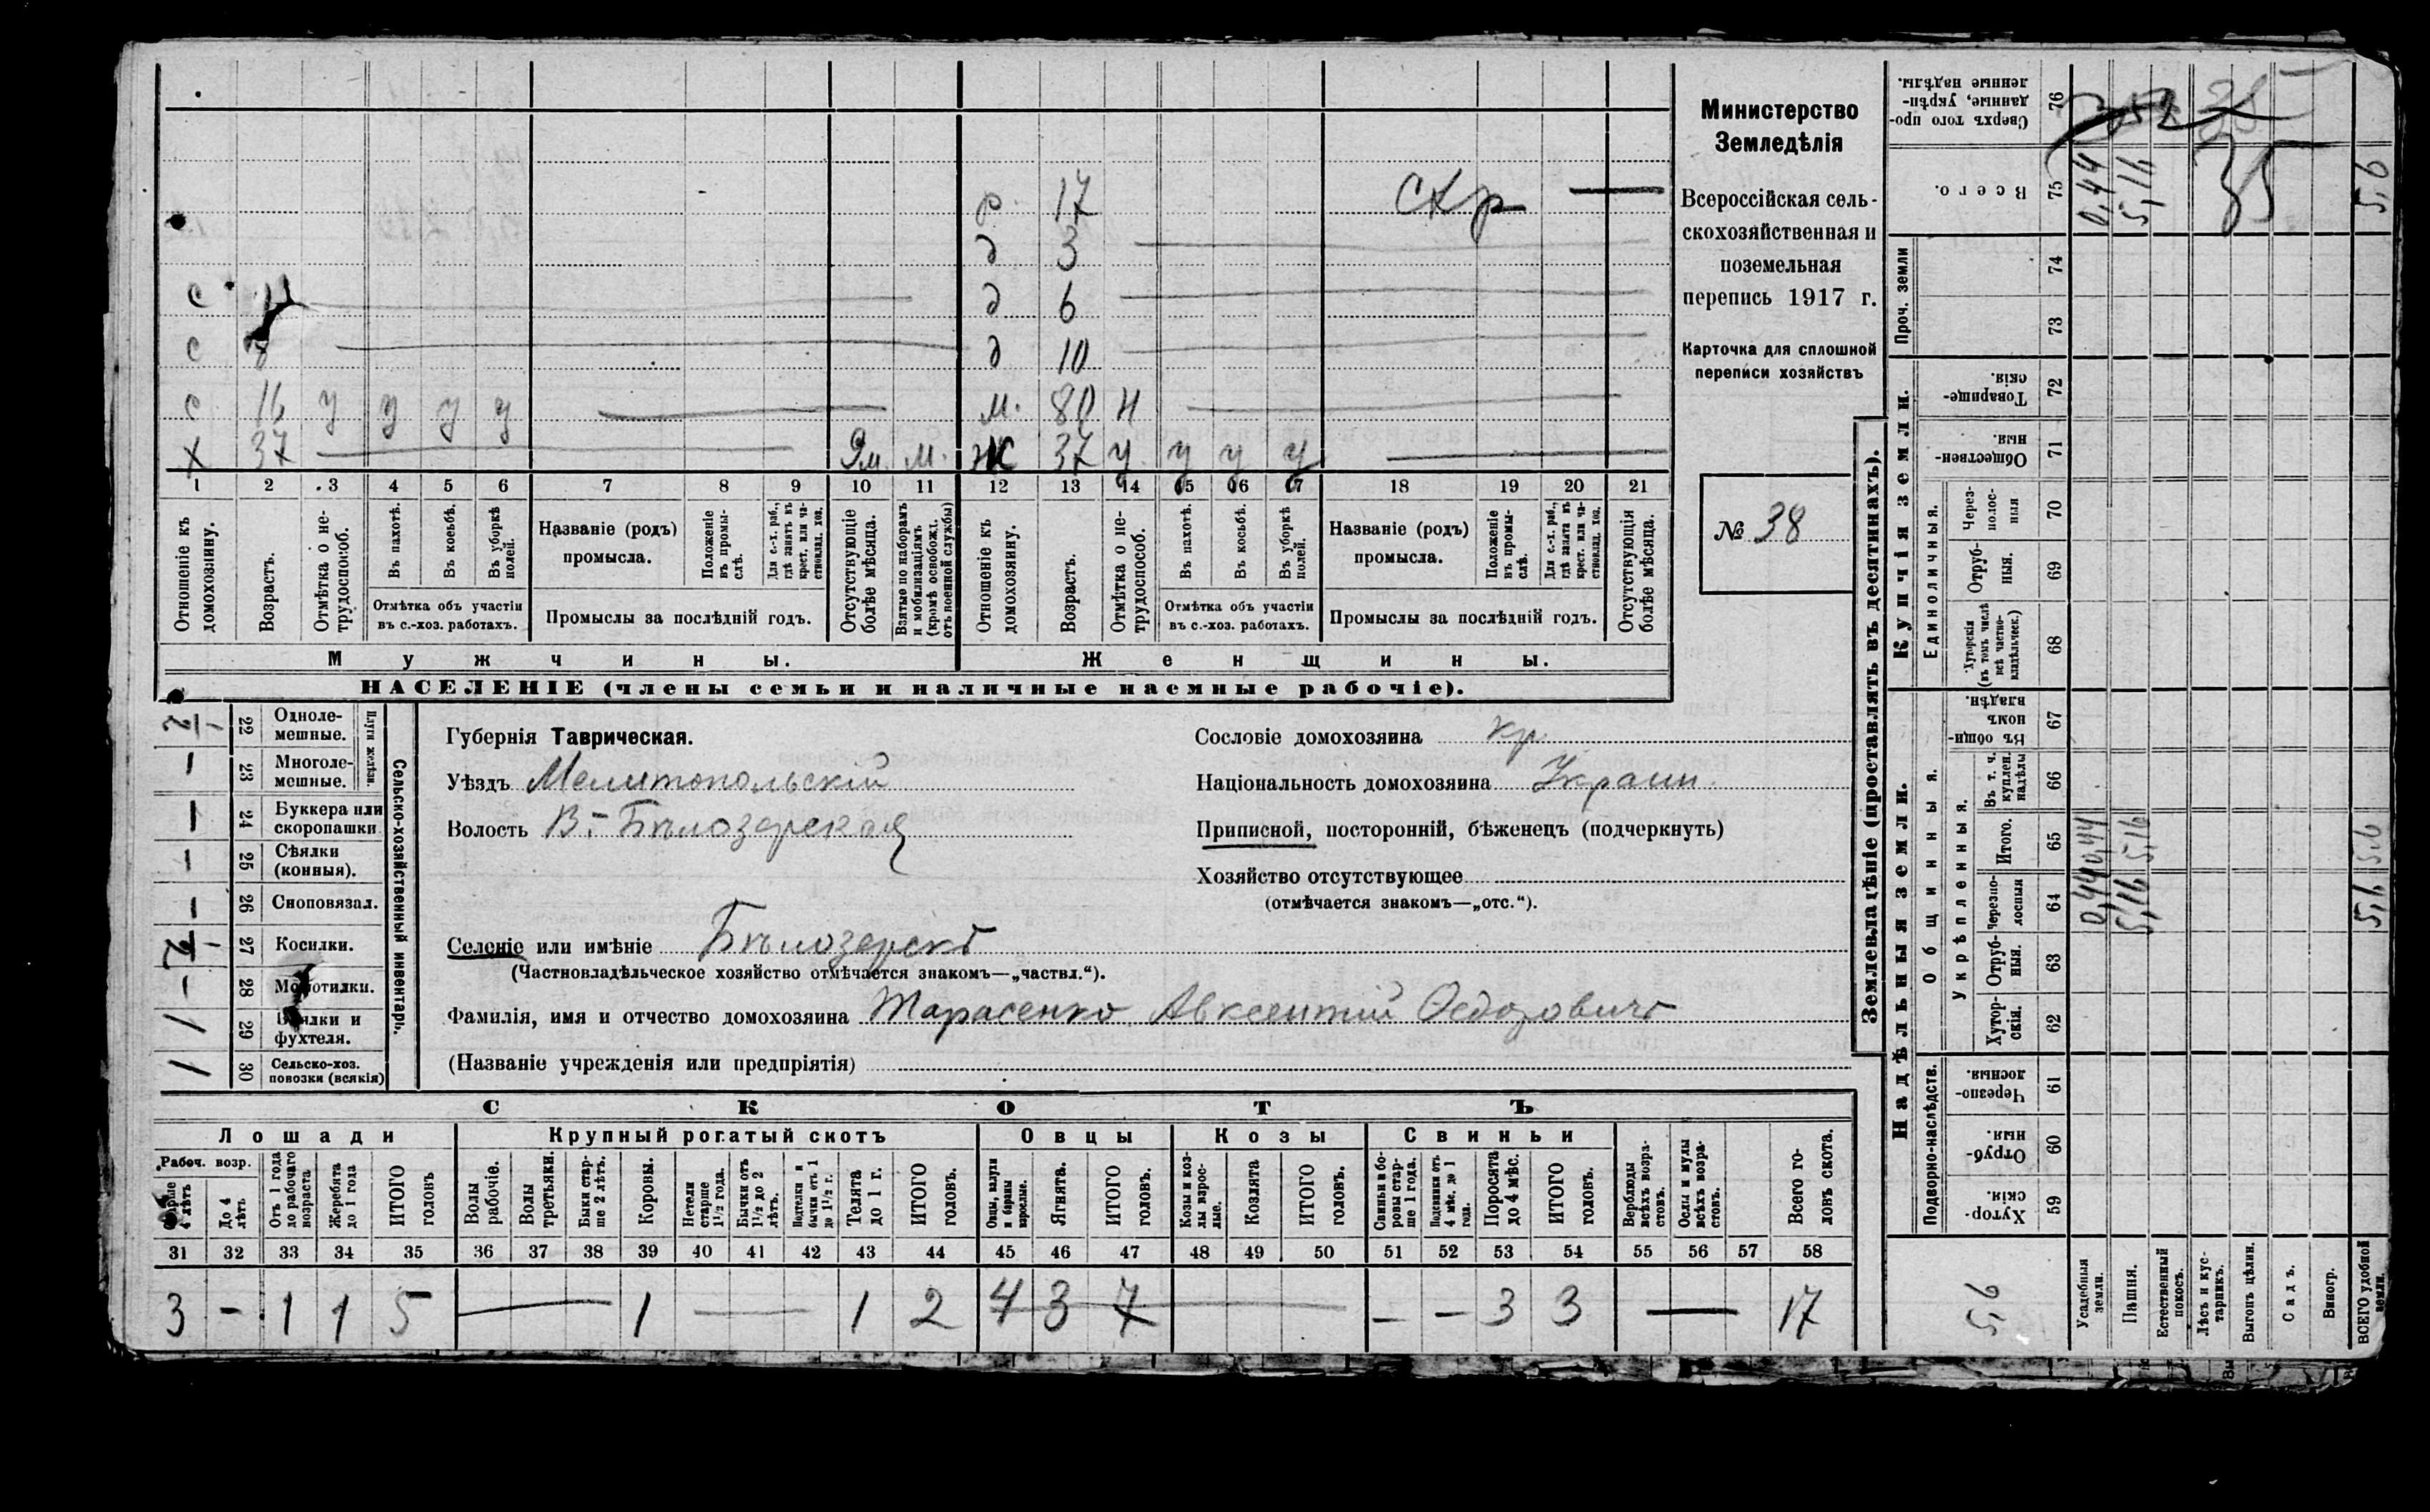 Министерство
Земледѣлія
Всероссійская сель-
скохозяйственная и
поземельная
перепись 1917 г.
Карточка для сплошной
переписи хозяйствъ
№ 38
р. 17 скр —
д 3
с д 6
с 8 д 10
с 16 у у у у м. 80 н
х 37 9м. м. ж 37 у у у у
1 2 3 4 5 6 7 8 9 10 11 12 13 14 15 16 17 18 19 20 21
Отношеніе къ домохозяину.
Возрастъ.
Отмѣтка о не-трудоспособ.
Въ пахотѣ.
Въ косьбѣ.
Въ уборкѣ полей.
Отмѣтка объ участіи
въ с.-хоз. работахъ.
Названіе (родъ)
промысла.
Положеніе въ промы-слѣ.
Для с.-х. раб., гдѣ занятъ въ крест. или ча-стновлад. хоз.
Промыслы за послѣдній годъ.
Отсутствующіе болѣе мѣсяца.
Взятые по наборамъ и мобилизаціямъ (кромѣ освобожд. отъ военной службы)
Отношеніе къ домохозяину.
Возрастъ.
Отмѣтка о не-трудоспособ.
Въ пахотѣ.
Въ косьбѣ.
Въ уборкѣ полей.
Отмѣтка объ участіи
въ с.-хоз. работахъ.
Названіе (родъ)
промысла.
Положеніе въ промы-слѣ.
Для с.-х. раб., гдѣ занята въ крест. или ча-стновлад. хоз.
Промыслы за послѣдній годъ.
Отсутствующія болѣе мѣсяца.
Мужчины. Женщины.
НАСЕЛЕНІЕ (члены семьи и наличные наемные рабочіе).
Сельско-хозяйственный инвентарь.
Плуги желѣзн.
1/2 22 Одноле-мешные.
— 23 Многоле-мешные.
— 24 Буккера или скоропашки
— 25 Сѣялки (конныя).
— 26 Сноповязал.
1/2 27 Косилки.
— 28 Молотилки.
1 29 Вѣялки и фухтеля.
1 30 Сельско-хоз. повозки (всякія)
Губернія Таврическая.
Уѣздъ Мелитопольскій
Волость В.-Бѣлозерская
Селеніе или имѣніе Бѣлозерскѣ
(Частновладѣльческое хозяйство отмѣчается знакомъ—„частвл.“).
Фамилія, имя и отчество домохозяина Тарасенко Авксентій Ѳедоровичъ
(Названіе учрежденія или предпріятія)
Сословіе домохозяина кр
Національность домохозяина Украин.
Приписной, посторонній, бѣженецъ (подчеркнуть)
Хозяйство отсутствующее
(отмѣчается знакомъ—„отс.“).
СКОТЪ
Лошади Крупный рогатый скотъ Овцы Козы Свиньи
Рабоч. возр.
Старше 4 лѣтъ
До 4 лѣтъ
Отъ 1 года до рабочаго возраста
Жеребята до 1 года
ИТОГО головъ
Волы рабочіе.
Волы третьяки.
Быки стар-ше 2 лѣтъ.
Коровы.
Нетели старше 1 1/2 года.
Бычки отъ 1 1/2 до 2 лѣтъ.
Подтелки и бычки отъ 1 до 1 1/2 г.
Телята до 1 г.
ИТОГО головъ.
Овцы, валухи и бараны взрослые.
Ягнята.
ИТОГО головъ.
Козы и коз-лы взрос-лые.
Козлята
ИТОГО головъ.
Свиньи и бо-ровы стар-ше 1 года.
Подсвинки отъ 4 мѣс. до 1 года.
Поросята до 4 мѣс.
ИТОГО головъ.
Верблюды всѣхъ возра-стовъ.
Ослы и мулы всѣхъ возра-стовъ.
Всего го-ловъ скота.
31 32 33 34 35 36 37 38 39 40 41 42 43 44 45 46 47 48 49 50 51 52 53 54 55 56 57 58
3 - 1 1 5 — 1 — 1 2 4 3 7 — — 3 3 — 17
Землевладѣніе (проставлять въ десятинахъ).
Сверхъ того про-данные, укрѣп-ленные надѣлы. 76
Всего. 75 0,44 5,16 35 5,6
Купчія земли.
Проч. земли 74 73
Товарище-скія. 72
Обществен-ныя. 71
Единоличныя.
Через-полос-ныя 70
Отруб-ныя. 69
Хуторскія (въ томъ числѣ всѣ частно-владѣльческ.) 68
Надѣльныя земли.
Общинныя.
Въ общи-номъ владѣн. 67
Укрѣпленныя.
Въ т. ч. куплен. надѣлы 66
Итого. 65 0,44 5,16 5,6
Черезпо-лосныя 64 0,44 5,16 5,6
Отруб-ныя. 63
Хутор-скія. 62
Подворно-наслѣдств.
Черезпо-лосныя. 61
Отруб-ныя. 60
Хутор-скія. 59
5,6
Усадебныя земли.
Пашня.
Естественный покосъ.
Лѣсъ и кус-тарникъ.
Выгонъ цѣлин.
Садъ.
Виногр.
ВСЕГО удобной земли.